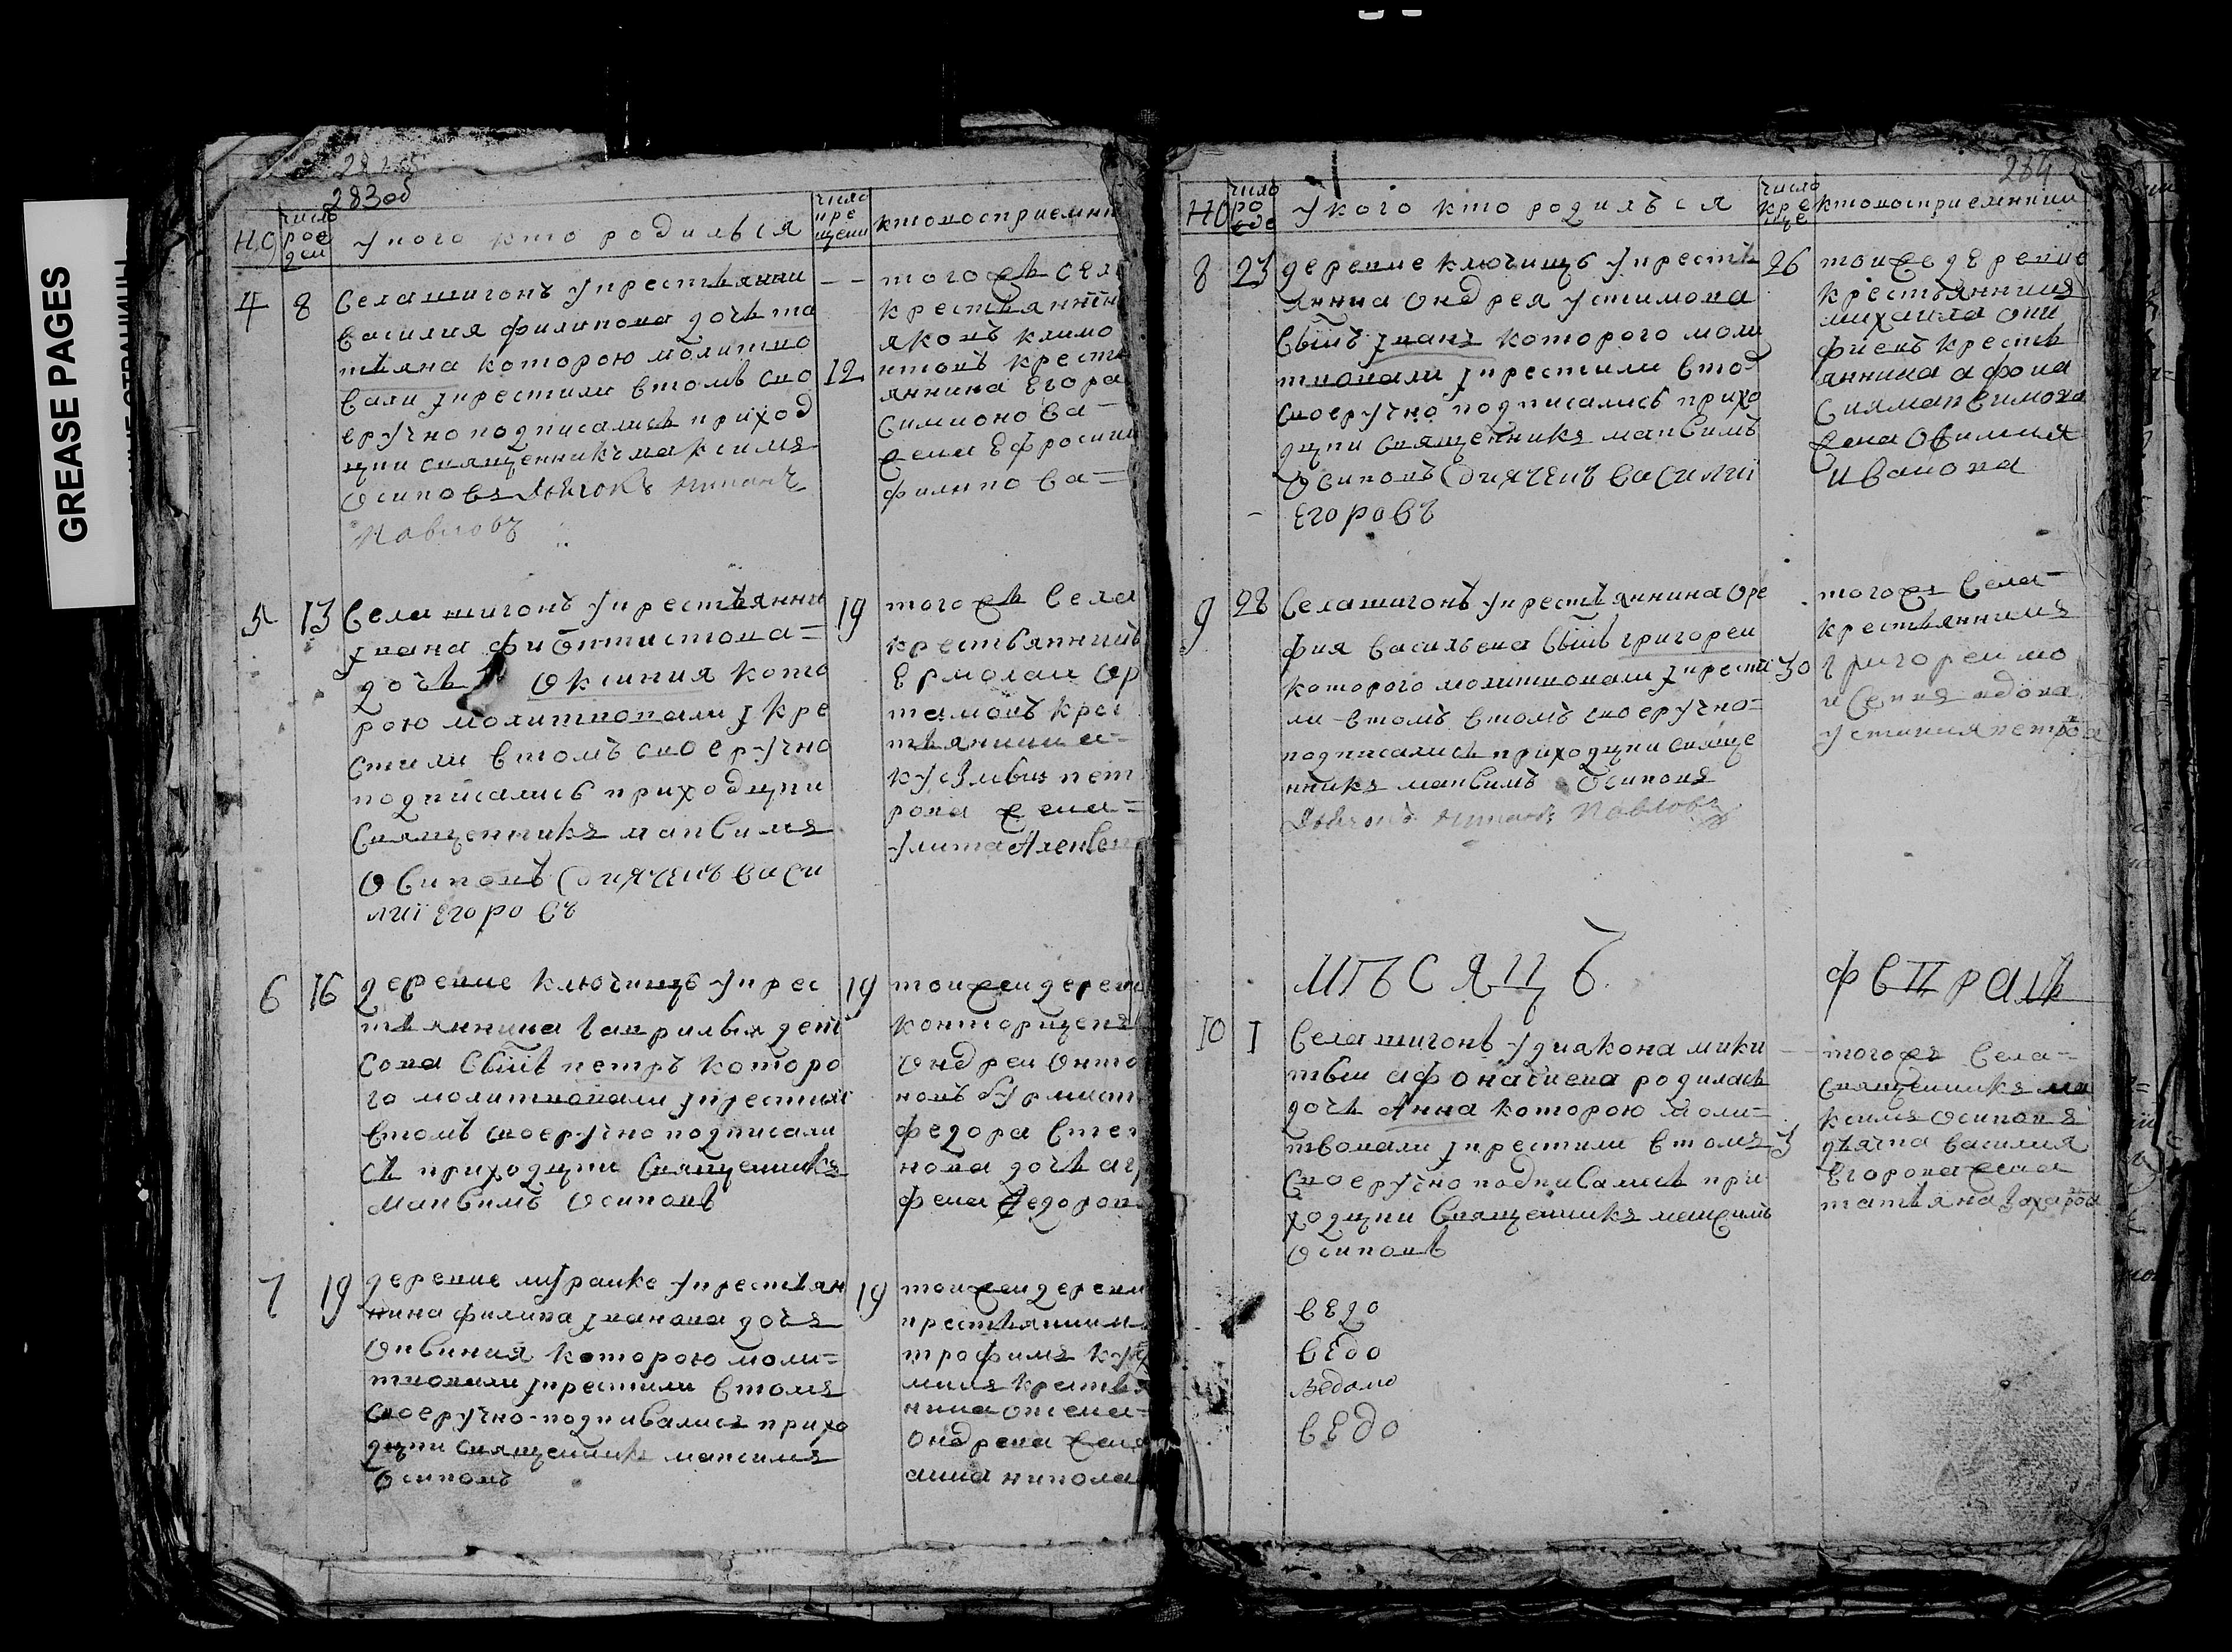 GREASE PAGES
283об
НО число рож ден
у кого кто родилься
число кре щени
кто восприемни
4 8 села шигонъ у крестьянни
василия филипова дочь та
тьяна которою молитво
вали и крестили втомъ сво 12
еручно подписались приход
цки священникъ максимъ
осиповъ дьячокъ
павловъ
того жъ села
крестьянинъ
яковъ клімо
нтовъ кресть
яннина егора
симионова
жена ефросинья
филипова
5 13 села шигонъ у крестьянни 19
ивана
дочь оксиния кото
рою молитвовали и кре
стили втомъ своеручно
подписались приходцки
священникъ максимъ
осиповъ дияченъ васи
лиї егоровъ
того жъ села
крестьянинъ
ермолаи ар
тамонъ крес
тьянина
кузмы пет
рова жена
улита
6 16 деревне ключищъ у крес 19
тьяннина гаврилы дени
сова сынъ петръ которо
го молитвовали и крестили
втомъ своеручно подписали
сь приходцки священникъ
максимъ осиповъ
тоижеи деревни
ондреи онто
новъ
федора степ
нова дочь агр
фена федоров
7 19 деревне муранке у крестьян 19
нина филипа иванова дочь
оксиния которою моли
твовали и крестили втомъ
своеручно подписались прихо
дцки священникъ максимъ
осиповъ
тоижеи деревни
крестьянинъ
трофимъ куз
минъ крестья
нина
ондреева жена
анна никола
284
НО число ро жде
у кого кто родилъся
число кре ще
кто восприемники
8 23 деревне ключищъ у кресть 26
янина ондрея устимова
сынъ иванъ которого моли
твовали и крестили втом
своеручно подписались прихо
дцки священникъ максимъ
осиповъ дияченъ василиї
егоровъ
тоиже деревне
крестьянинъ
михаила они
фиевъ кресть
яннина афона
сия максимова
жена офимия
иванова
9 28 села шигонъ у крестьяннина оре
фия васильева сынъ григореи
которого молитвовали и крести 30
ли втомъ втомъ своеручно
подписались приходцки свяще
нникъ максимъ осиповъ
дьячокъ павловъ
того жъ села
крестьянинъ
григореи мо
исеевъ вдова
устиния петрова
мѣсяцъ февраль
10 1 села шигонъ у дияконa мики
ты афонасиева родилась
дочь анна которою моли
твовали и крестили втомъ 3
своеручно подписались при
ходцки священникъ максимъ
осиповъ
того жъ села
священникъ ма
ксимъ осиповъ
дьячка василия
егорова жена
татьяна захарова
ведо
ведо
ведомо
ведо